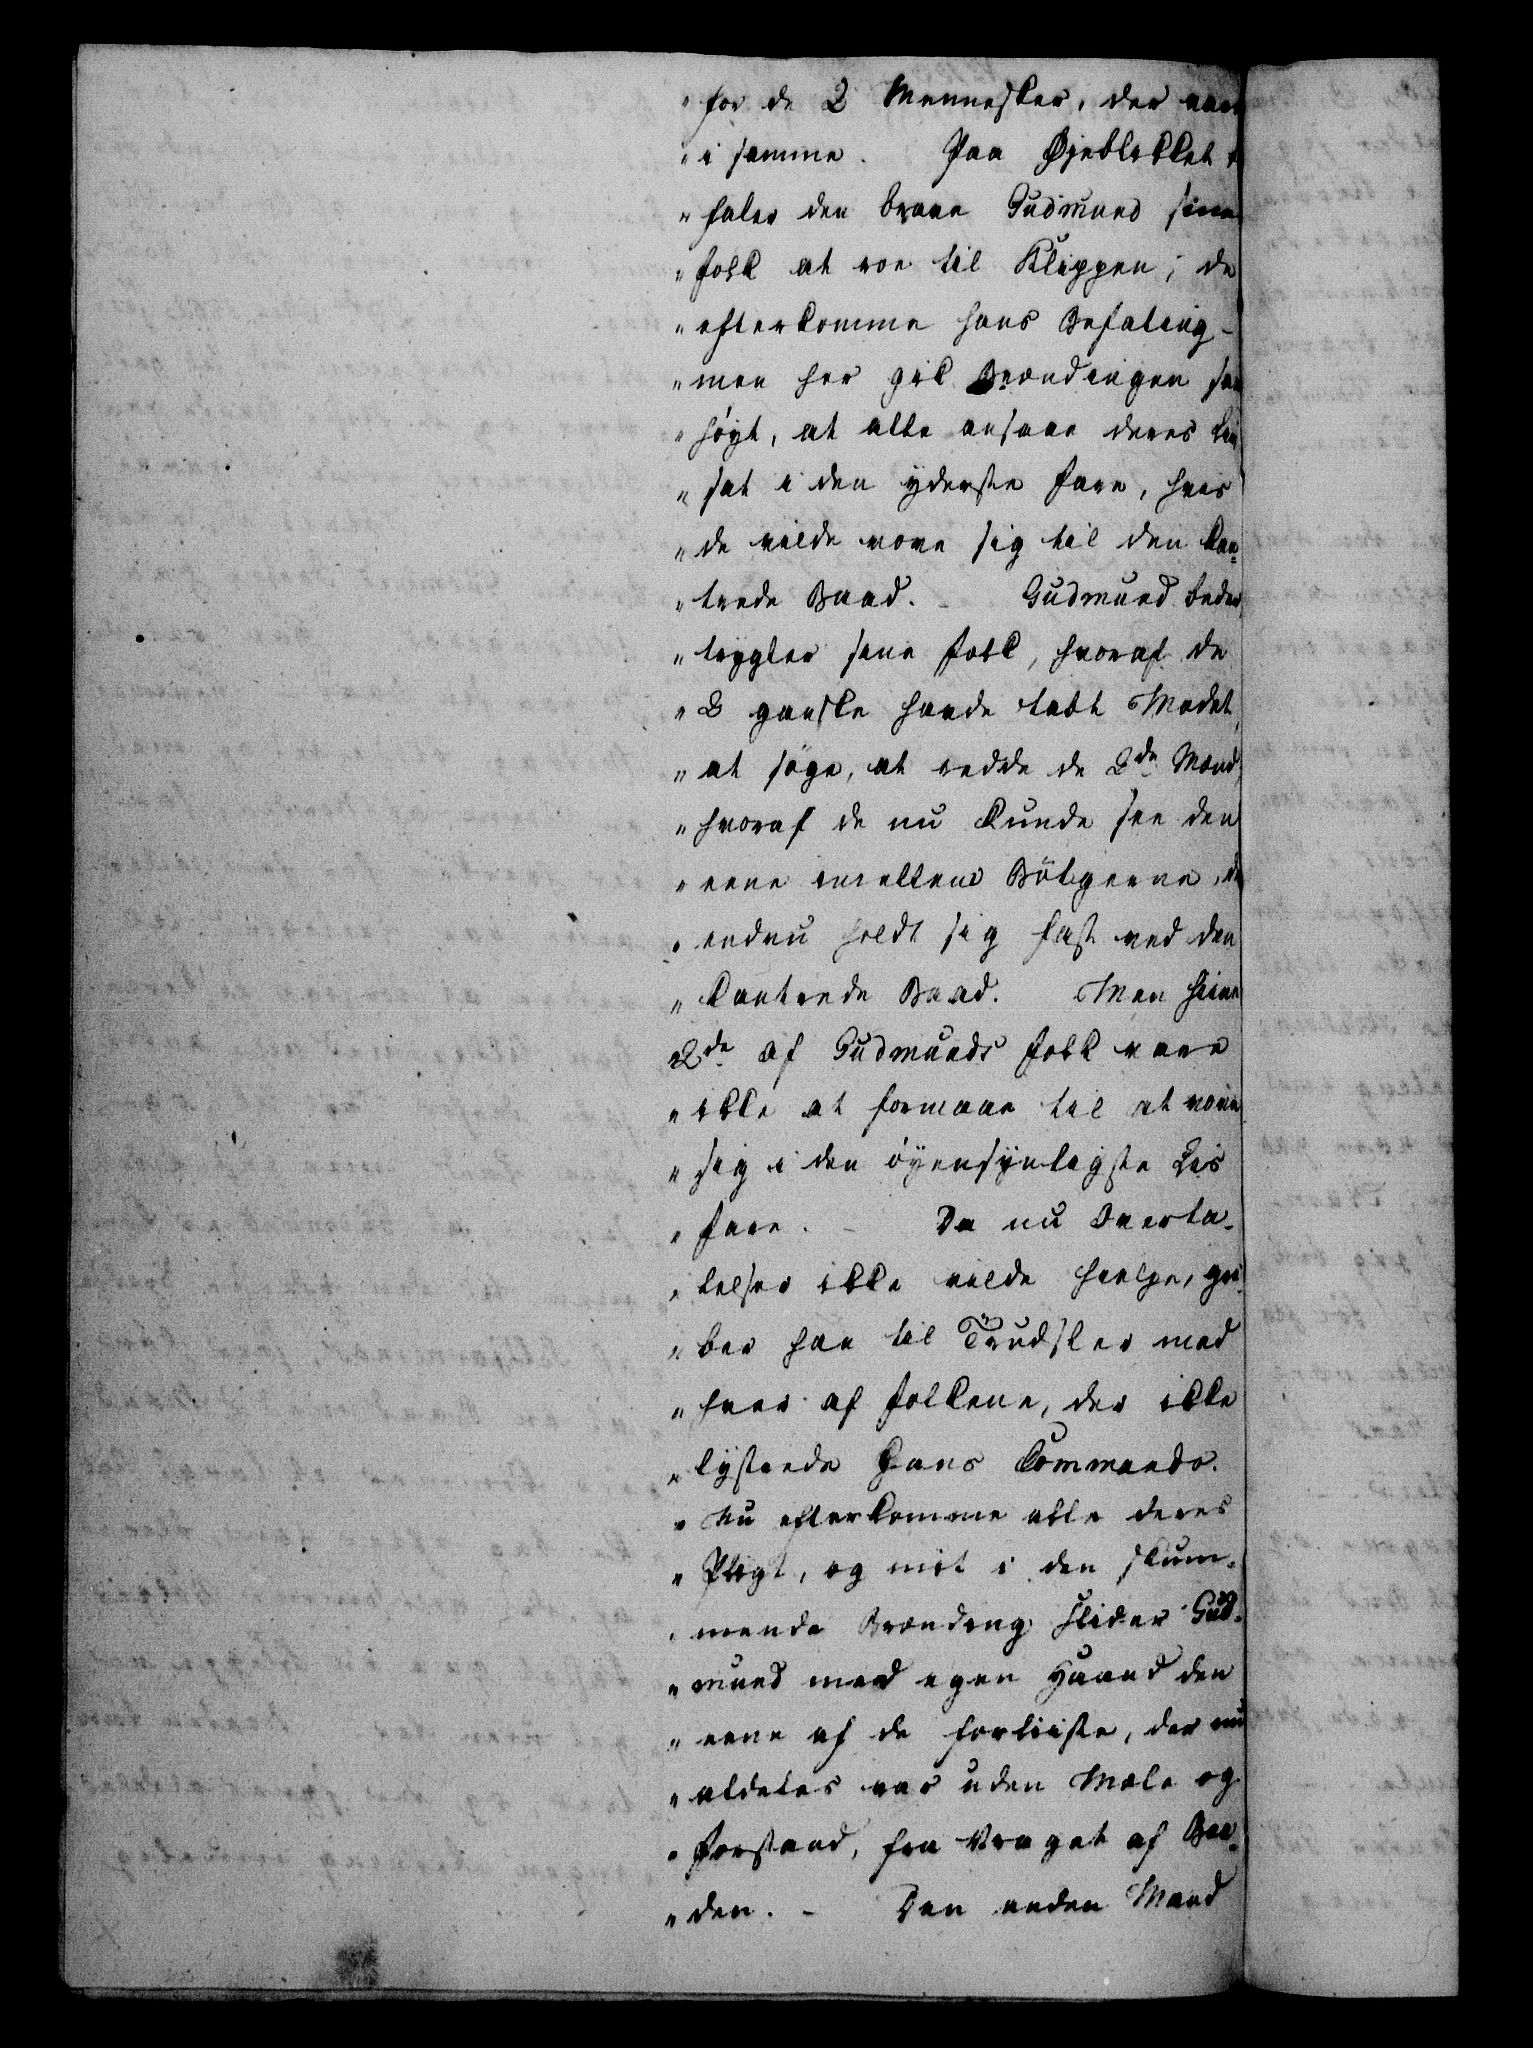 " for de 2 Mennesker, der vare
" i samme. Paa Øjeblikket
" faler den brave Gudmund sine
" Folk at roe til Klippen; de
" efterkomme hans Befaling –
" men her gik Brændingen saa
" høyt, at alle ansaae deres Liv
" sat i den yderste Fare, hvis
" de vilde vove sig til den kan-
" trede Baad. – Gudmund beder,
" trygler sine Folk, hvoraf de
" 2 ganske havde tabt Modet,
" at søge, at redde de 2de Mænd,
" hvoraf de nu kunde see den
" eene imellem Bølgerne,
" endnu holdt sig fast ved den
" kantrede Baad. Men hine
" 2de af Gudmunds Folk vare
" ikke at formaae til at vove
" sig i den øyensynligste Livs
" Fare. – Da nu Overta-
" lelser ikke vilde hielpe, gri-
" ber han til Trudsler mod
" hver af Folkene, der ikke
" lystrede hans Commando.
" Nu efterkomme alle deres
" Pligt, og mit i den skum-
" mende Brænding slider Gud-
" mund med egen Haand den
" eene af de forliiste, der nu
" aldeles var uden Mæle og
" Forstand, fra Vraget af Baa-
" den. – Den anden Mand